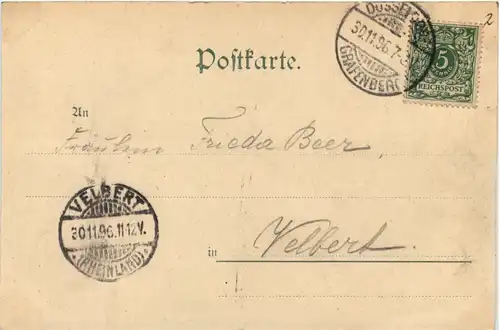 2
DÜSSELDORF
30.11.96.7-8
GRAFENBERG
5
REICHSPOST
Postkarte.
An
Fräulein Frieda Beer
VELBERT
30.11.96.11-12V.
(RHEINLAND)
in Velbert.